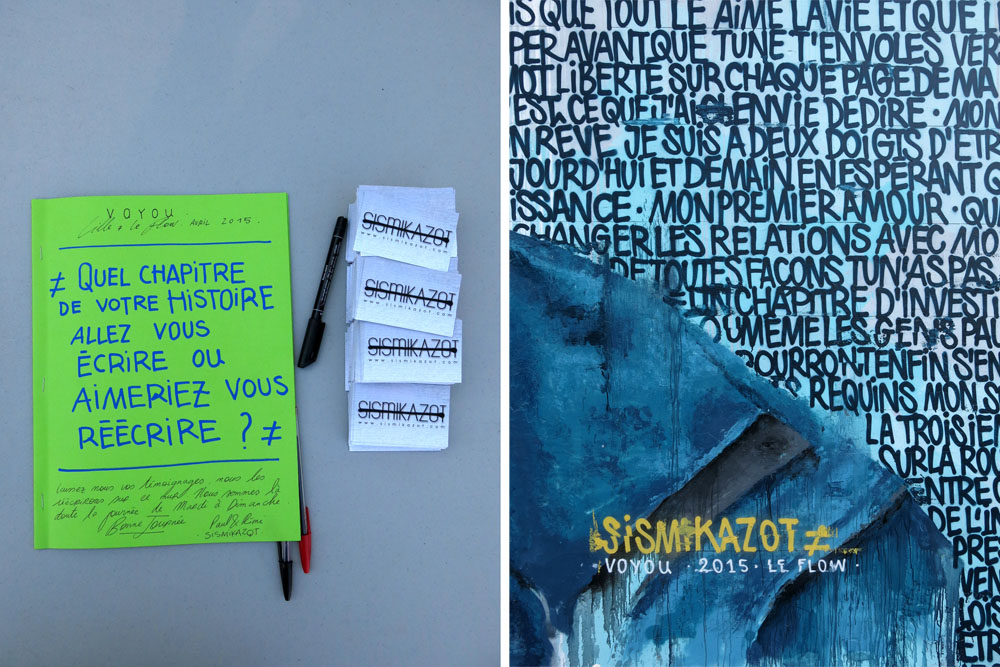 VOYOU
Lille & le flow. AVRIL 2015.
≠ QUEL CHAPITRE
DE VOTRE HISTOIRE
ALLEZ VOUS
ÉCRIRE OU
AIMERIEZ VOUS
RÉÉCRIRE ? ≠
Laissez nous vos témoignages, nous les
réécrirons sur ce mur. Nous sommes là
toute la journée de Mardi à Dimanche
Bonne Journée Paul & Rémi
- SISMIKAZOT
SISMIKAZOT
www.sismikazot.com
SISMIKAZOT
www.sismikazot.com
SISMIKAZOT
www.sismikazot.com
SISMIKAZOT
www.sismikazot.com
IS QUE TOUT LE AIME LA VIE ET QUE L
PER AVANT QUE TU NE T'ENVOLES VERS
MOT LIBERTE SUR CHAQUE PAGE DE MA
EST CE QUE J'AI ENVIE DE DIRE · MON
N REVE. JE SUIS A DEUX DOIGTS D'ETR
JOURD'HUI ET DEMAIN EN ESPÉRANT Q
ISSANCE · MON PREMIER AMOUR · QU
CHANGER LES RELATIONS AVEC MO
DE TOUTES FAÇONS TU N'AS PAS
UN CHAPITRE D'INVESTI
OU MEME LES GENS PAU
POURRONT ENFIN S'EN
REQUINS MON S
LA TROISIEM
SUR LA ROU
ENTRE
DE L'IN
PRES
VEN
LOIS
ETR
SISMIKAZOT ≠
· VOYOU · 2015 · LE FLOW ·